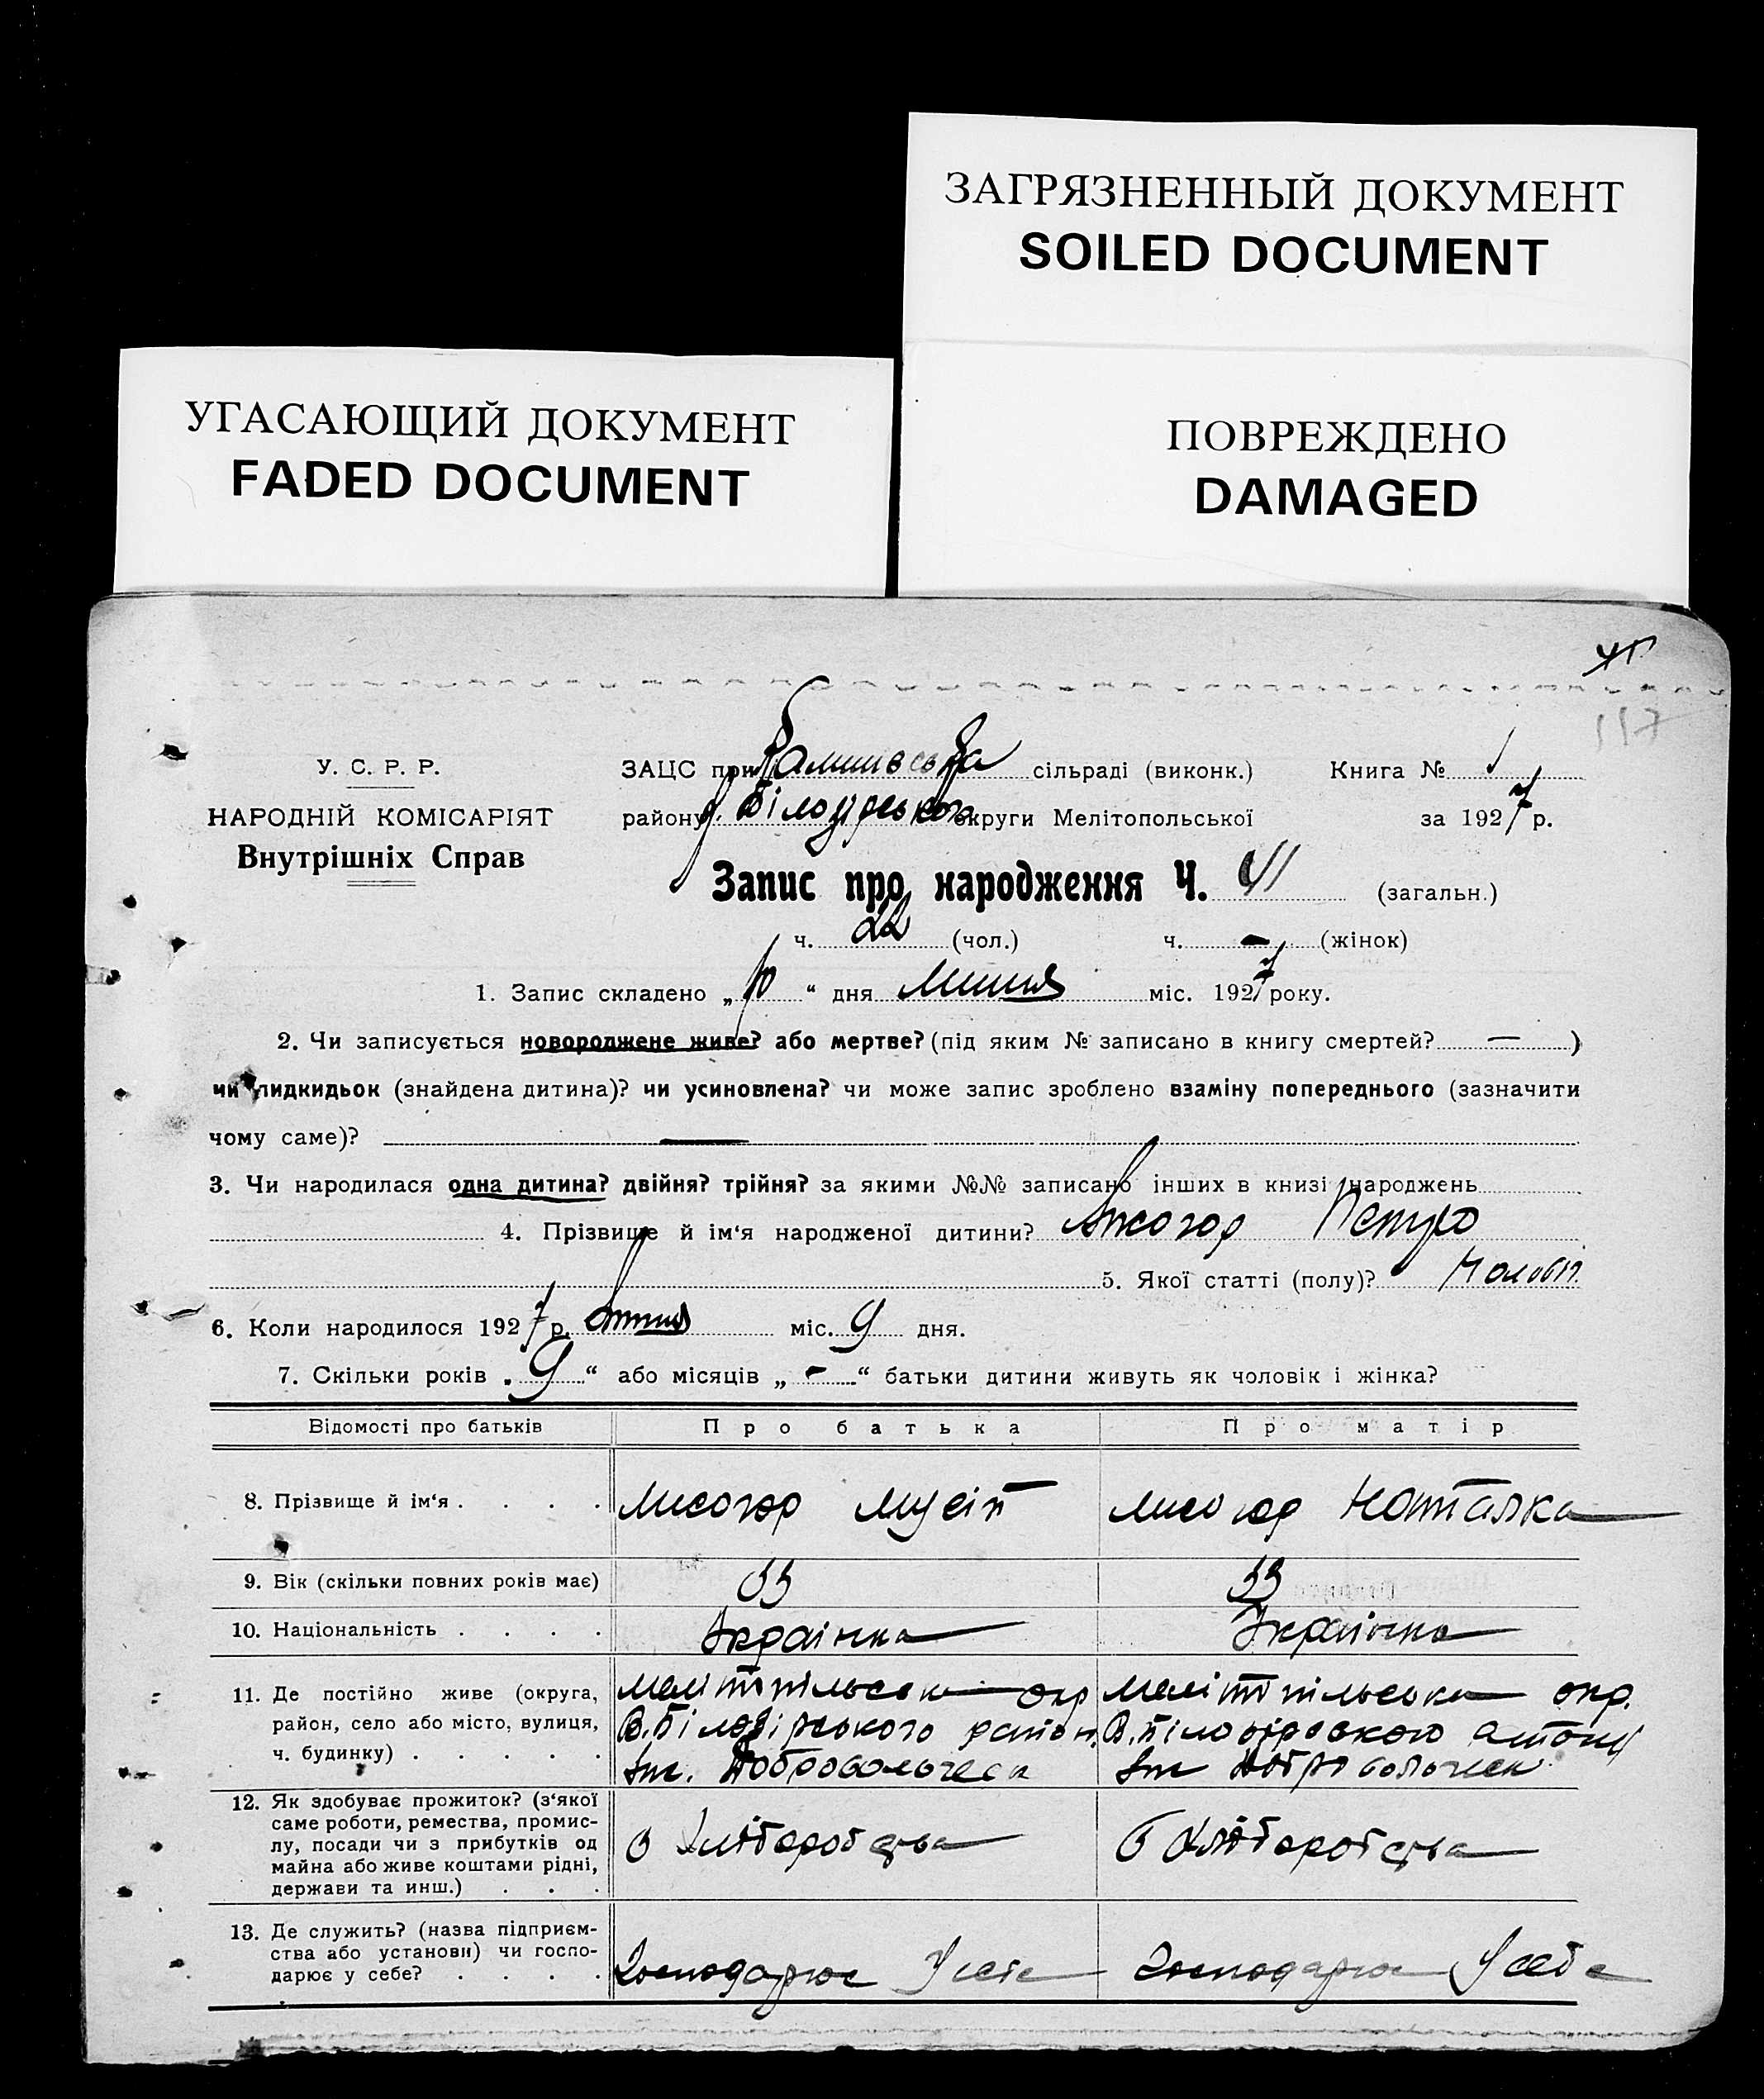 ЗАГРЯЗНЕННЫЙ ДОКУМЕНТ
SOILED DOCUMENT
УГАСАЮЩИЙ ДОКУМЕНТ
FADED DOCUMENT
ПОВРЕЖДЕНО
DAMAGED
117
У. С. Р. Р.
НАРОДНІЙ КОМІСАРІЯТ
Внутрішніх Справ
ЗАЦС при сільраді (виконк.) Книга № 1
району округи Мелітопольської за 1927 р.
Запис про народження Ч. 41 (загальн.)
ч. 22 (чол.) ч. - (жінок)
1. Запис складено „10“ дня липня міс. 1927 року.
2. Чи записується новороджене живе? або мертве? (під яким № записано в книгу смертей? — )
чи підкидьок (знайдена дитина)? чи усиновлена? чи може запис зроблено взаміну попереднього (зазначити
чому саме)? —
3. Чи народилася одна дитина? двійня? трійня? за якими №№ записано інших в книзі народжень
4. Прізвище й ім‘я народженої дитини? Лисогор Петро
5. Якої статті (полу)?
6. Коли народилося 1927 р. липня міс. 9 дня.
7. Скільки років „9“ або місяців „-“ батьки дитини живуть як чоловік і жінка?
Відомості про батьків Про батька Про матір
8. Прізвище й ім‘я . . . . Лисогор Мусій Лисогор Наталка
9. Вік (скільки повних років має) 33 33
10. Національність . . . . Українка Українка
11. Де постійно живе (округа,
район, село або місто, вулиця,
ч. будинку) . . . . .
12. Як здобуває прожиток? (з‘якої
саме роботи, ремества, промис-
лу, посади чи з прибутків од
майна або живе коштами рідні,
держави та инш.) . . .
З Хліборобства З Хліборобства
13. Де служить? (назва підприєм-
ства або установи) чи госпо-
дарює у себе? . . . .
Господарює У себе Господарює У себе